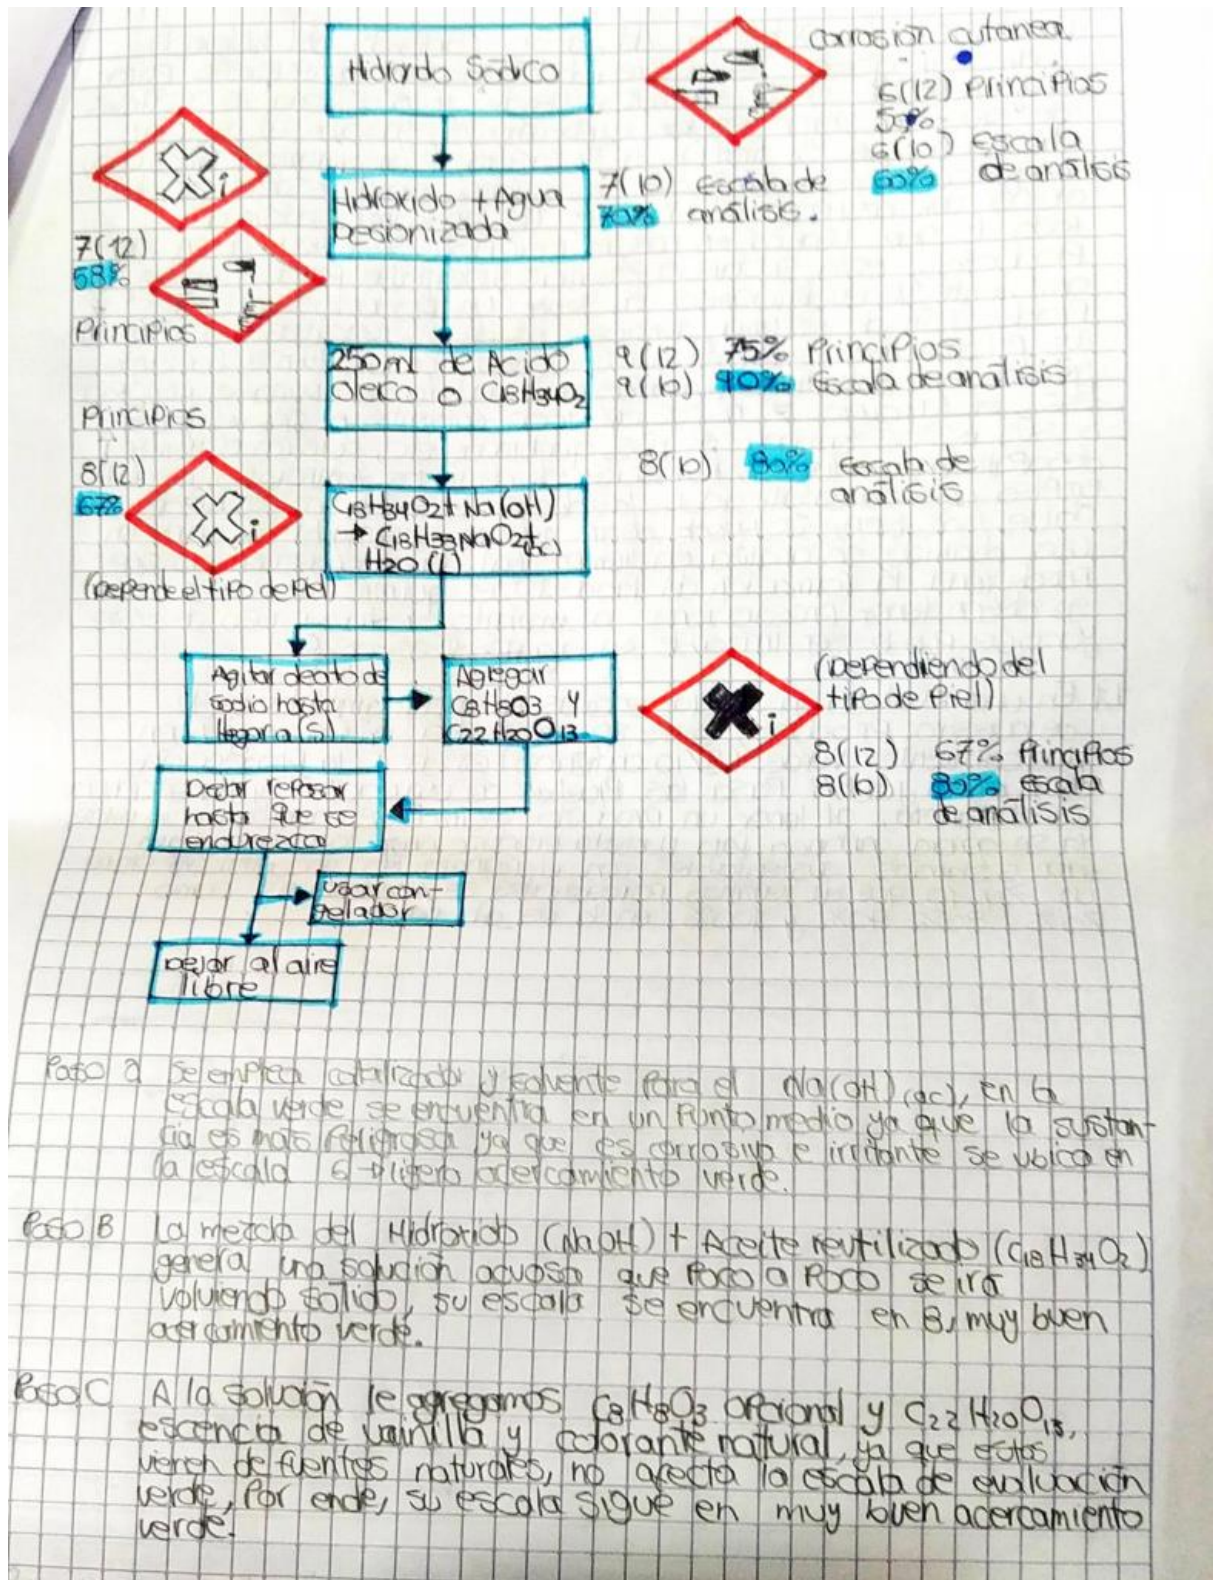 Hidróxido Sódico
corrosión cutanea.
6(12) Principios
50%
6(10) Escala
60% de análisis
i
Hidróxido + Agua
Desionizada
7(10) Escala de
70% análisis.
7(12)
58%
Principios
250ml de Acido
Oleico o C18H34O2
9(12) 75% Principios
9(10) 90% Escala de análisis
Principios
8(12)
67%
i
(Depende el tipo de Piel)
C18H34O2+ Na(OH)
→ C18H33NaO2+(ac)
H2O (L)
8(10) 80% Escala de
análisis
Agitar oleato de
sodio hasta
llegar a (S)
Agregar
C8H8O3 y
C22H20O13
i
(Dependiendo del
tipo de Piel)
8(12) 67% Principios
8(10) 80% escala
de análisis
Dejar reposar
hasta que se
endurezca
usar con-
gelador
Dejar al aire
libre
Paso a Se emplea catalizador y solvente para el Na(OH)(ac), en la
escala verde se encuentra en un Punto medio ya que la sustan-
cia es más Peligrosa ya que es corrosivo e irritante se ubica en
la escala 6 → ligero acercamiento verde.
Paso B La mezcla del Hidróxido (NaOH) + Aceite reutilizado (C18H34O2)
genera una solución acuosa que Poco a Poco se irá
volviendo sólido, su escala se encuentra en 8, muy buen
acercamiento verde.
Paso C A la solución le agregamos C8H8O3 opcional y C22H20O13,
escencia de vainilla y colorante natural, ya que estos
vienen de fuentes naturales, no afecta la escala de evaluación
verde, Por ende, su escala sigue en muy buen acercamiento
verde.